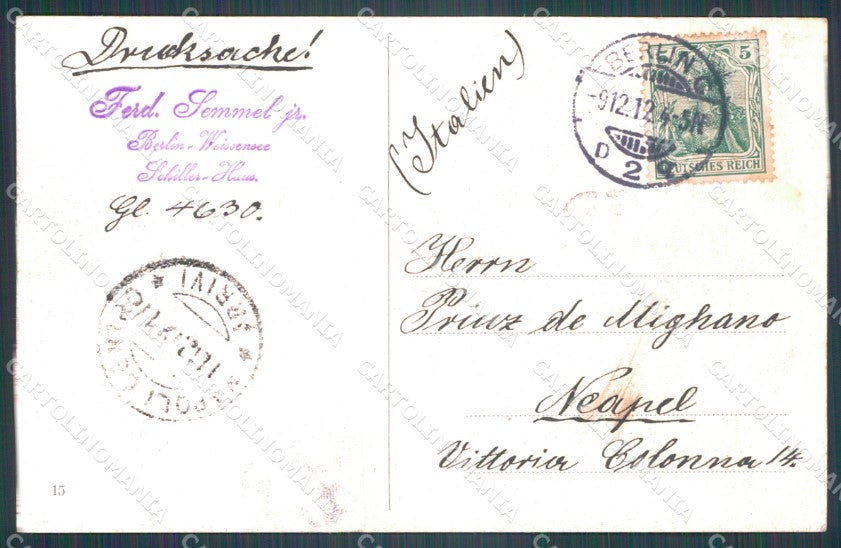 Drucksache!
Ferd. Semmel jr.
Berlin-Weissensee
Schiller-Haus.
Gl. 4630.
(Italien)
BERLIN
-912.12.4-5N
D 2
5
DEUTSCHES REICH
Herrn
Prinz de Mighano
Neapel
Vittoria Colonna 14.
NAPOLI
ARRIVI
15
CARTOLINOMANIA